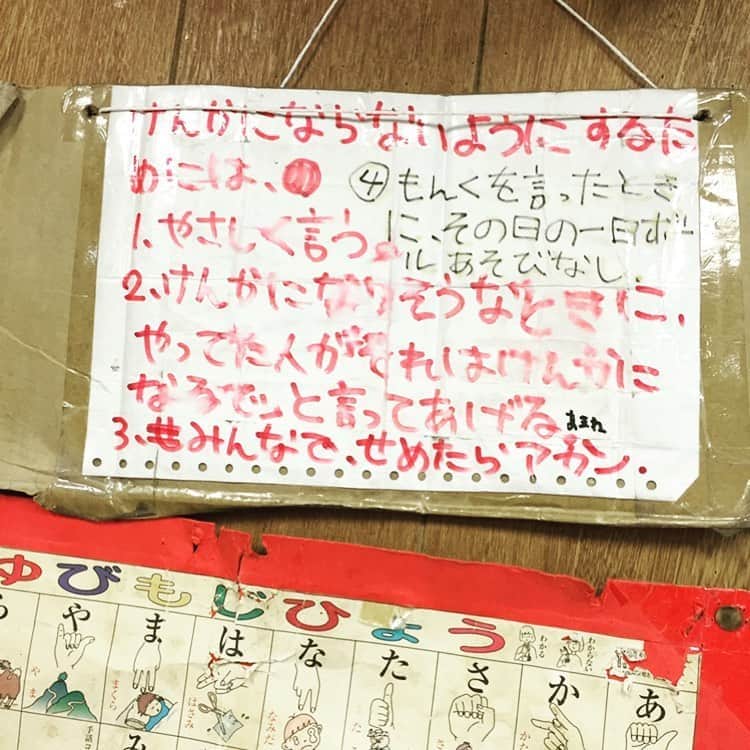 けんかにならないようにするた
めには、
1、やさしく言う。
2、けんかになりそうなときに、
やってた人がそれはけんかに
なるでッと言ってあげる
3、みんなで、せめたらアカン.
④もんくを言ったとき
に、その日の一日ボー
ルあそびなし.
ゆびもじひょう
わかる
わからない
や
ま
は
な
た
さ
か
あ
やま
まくら
はさみ
なみだ
み